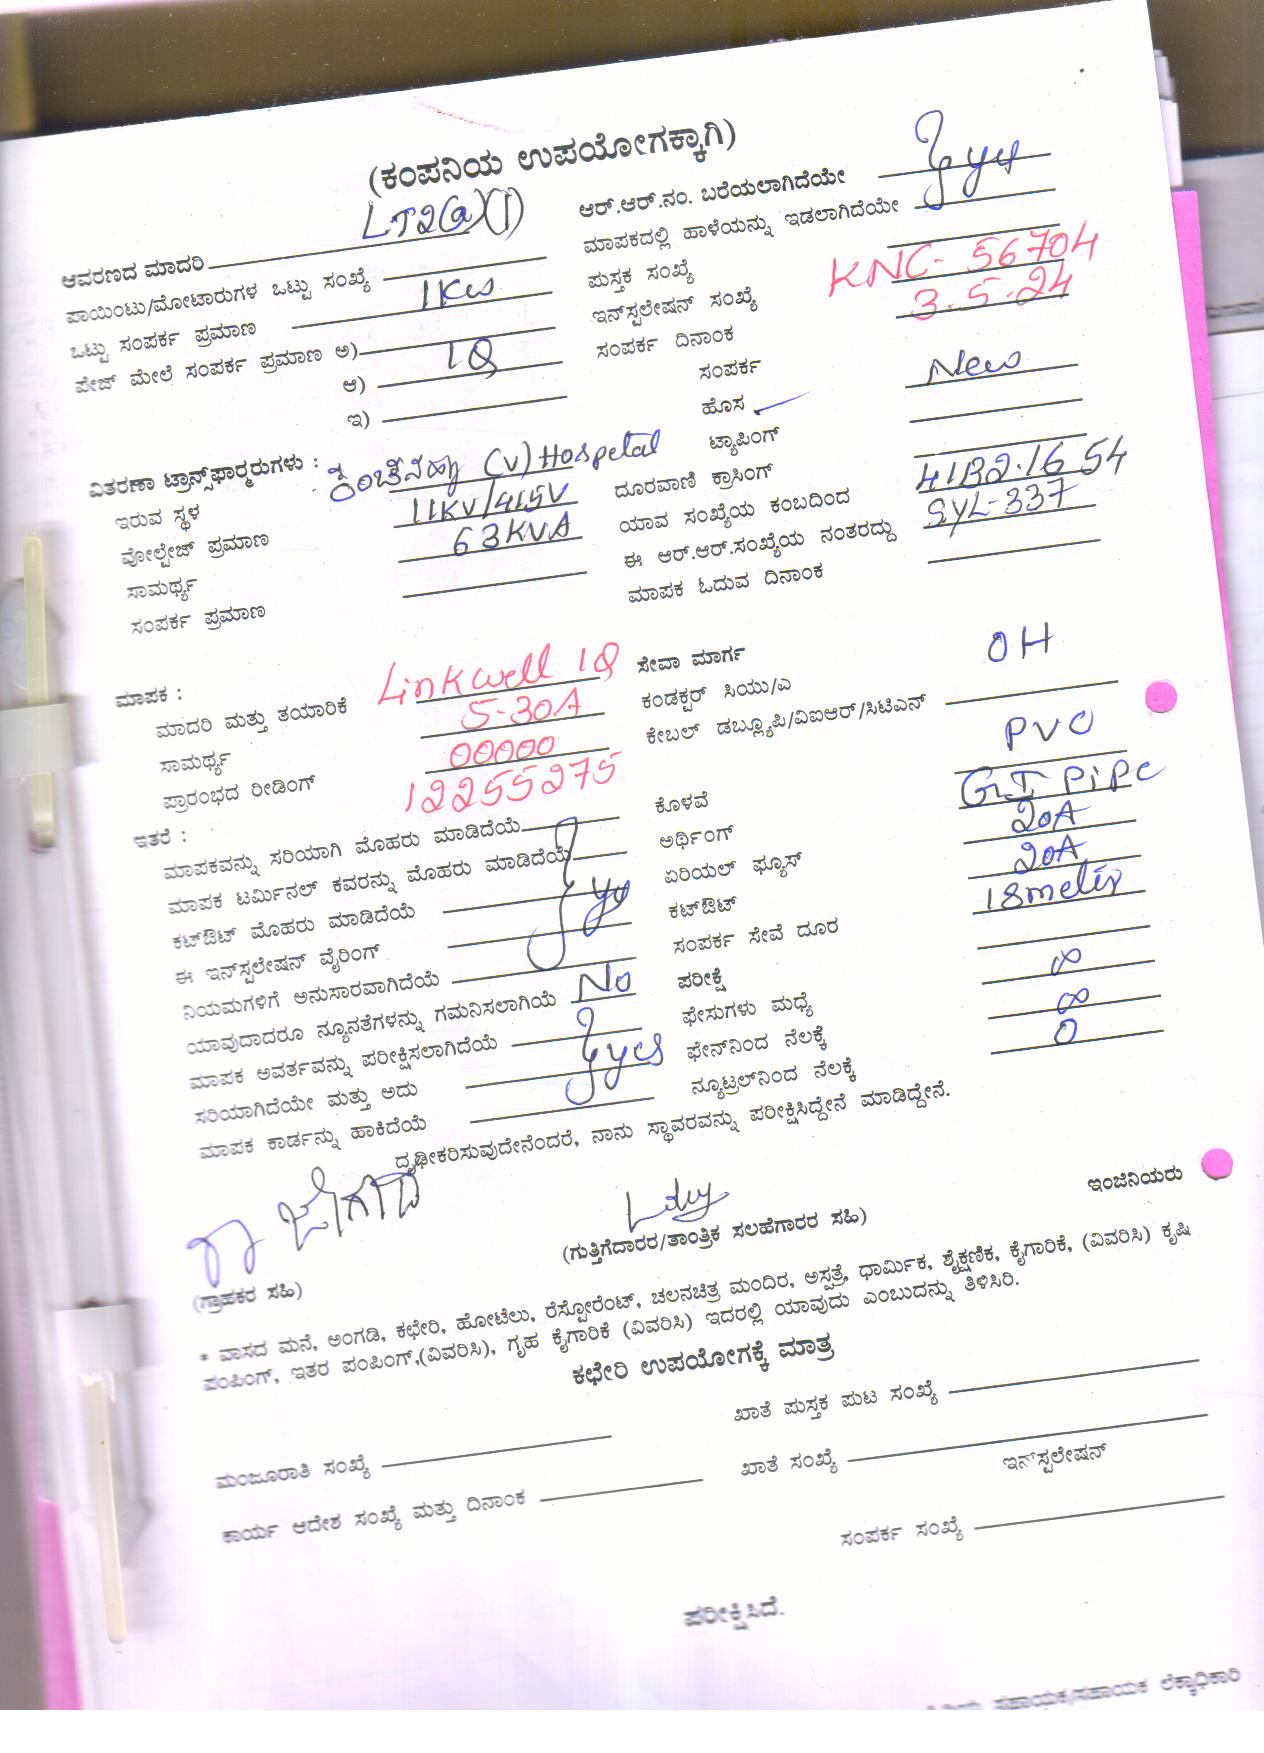 (ಕಂಪನಿಯ ಉಪಯೋಗಕ್ಕಾಗಿ)
ಆವರಣದ ಮಾದರಿ LT2(a)(1)
ಪಾಯಿಂಟು/ಮೋಟಾರುಗಳ ಒಟ್ಟು ಸಂಖ್ಯೆ
ಒಟ್ಟು ಸಂಪರ್ಕ ಪ್ರಮಾಣ 1Kw
ಪೇಜ್ ಮೇಲೆ ಸಂಪರ್ಕ ಪ್ರಮಾಣ ಅ)
ಆ) 1Q
ಇ)
ಆರ್.ಆರ್.ನಂ. ಬರೆಯಲಾಗಿದೆಯೇ
ಮಾಪಕದಲ್ಲಿ ಹಾಳೆಯನ್ನು ಇಡಲಾಗಿದೆಯೇ } yes
ಪುಸ್ತಕ ಸಂಖ್ಯೆ
ಇನ್ಸ್ಪಲೇಷನ್ ಸಂಖ್ಯೆ KNC- 56704
ಸಂಪರ್ಕ ದಿನಾಂಕ 3.5.24
ಸಂಪರ್ಕ
ಹೊಸ New
ಟ್ಯಾಪಿಂಗ್
ದೂರವಾಣಿ ಕ್ರಾಸಿಂಗ್
ಯಾವ ಸಂಖ್ಯೆಯ ಕಂಬದಿಂದ 41B2.16 54
ಈ ಆರ್.ಆರ್.ಸಂಖ್ಯೆಯ ನಂತರದ್ದು SYL-337
ಮಾಪಕ ಓದುವ ದಿನಾಂಕ
ವಿತರಣಾ ಟ್ರಾನ್ಸ್‌ಫಾರ್ಮರುಗಳು :
ಇರುವ ಸ್ಥಳ (V) Hospetal
ವೋಲ್ಟೇಜ್ ಪ್ರಮಾಣ 11KV/415V
ಸಾಮರ್ಥ್ಯ 63KVA
ಸಂಪರ್ಕ ಪ್ರಮಾಣ
ಮಾಪಕ :
ಮಾದರಿ ಮತ್ತು ತಯಾರಿಕೆ Linkwell 1Q
ಸಾಮರ್ಥ್ಯ 5-30A
ಪ್ರಾರಂಭದ ರೀಡಿಂಗ್ 00000
12255275
ಇತರೆ :
ಮಾಪಕವನ್ನು ಸರಿಯಾಗಿ ಮೊಹರು ಮಾಡಿದೆಯೆ
ಮಾಪಕ ಟರ್ಮಿನಲ್ ಕವರನ್ನು ಮೊಹರು ಮಾಡಿದೆಯೆ
ಕಟ್‌ಔಟ್ ಮೊಹರು ಮಾಡಿದೆಯೆ } yes
ಈ ಇನ್‌ಸ್ಪಲೇಷನ್ ವೈರಿಂಗ್
ನಿಯಮಗಳಿಗೆ ಅನುಸಾರವಾಗಿದೆಯೆ
ಯಾವುದಾದರೂ ನ್ಯೂನತೆಗಳನ್ನು ಗಮನಿಸಲಾಗಿಯೆ No
ಮಾಪಕ ಅವರ್ತವನ್ನು ಪರೀಕ್ಷಿಸಲಾಗಿದೆಯೆ
ಸರಿಯಾಗಿದೆಯೇ ಮತ್ತು ಅದು } yes
ಮಾಪಕ ಕಾರ್ಡನ್ನು ಹಾಕಿದೆಯೆ
ಸೇವಾ ಮಾರ್ಗ OH
ಕಂಡಕ್ಟರ್ ಸಿಯು/ಎ
ಕೇಬಲ್ ಡಬ್ಲ್ಯೂಪಿ/ವಿಐಆರ್/ಸಿಟಿಎನ್ PVC
ಕೊಳವೆ
ಅರ್ಥಿಂಗ್ G.I PiPe
ಏರಿಯಲ್ ಫ್ಯೂಸ್ 20A
ಕಟ್‌ಔಟ್ 20A
ಸಂಪರ್ಕ ಸೇವೆ ದೂರ 18 meter
ಪರೀಕ್ಷೆ
ಫೇಸುಗಳು ಮಧ್ಯೆ ∞
ಫೇನ್‌ನಿಂದ ನೆಲಕ್ಕೆ ∞
ನ್ಯೂಟ್ರಲ್‌ನಿಂದ ನೆಲಕ್ಕೆ 0
ದೃಢೀಕರಿಸುವುದೇನೆಂದರೆ, ನಾನು ಸ್ಥಾವರವನ್ನು ಪರೀಕ್ಷಿಸಿದ್ದೇನೆ ಮಾಡಿದ್ದೇನೆ.
ಇಂಜಿನಿಯರು
(ಗ್ರಾಹಕರ ಸಹಿ)
(ಗುತ್ತಿಗೆದಾರರ/ತಾಂತ್ರಿಕ ಸಲಹೆಗಾರರ ಸಹಿ)
* ವಾಸದ ಮನೆ, ಅಂಗಡಿ, ಕಛೇರಿ, ಹೋಟೆಲು, ರೆಸ್ಟೋರೆಂಟ್, ಚಲನಚಿತ್ರ ಮಂದಿರ, ಅಸ್ಪತ್ರೆ, ಧಾರ್ಮಿಕ, ಶೈಕ್ಷಣಿಕ, ಕೈಗಾರಿಕೆ, (ವಿವರಿಸಿ) ಕೃಷಿ
ಪಂಪಿಂಗ್, ಇತರ ಪಂಪಿಂಗ್,(ವಿವರಿಸಿ), ಗೃಹ ಕೈಗಾರಿಕೆ (ವಿವರಿಸಿ) ಇದರಲ್ಲಿ ಯಾವುದು ಎಂಬುದನ್ನು ತಿಳಿಸಿರಿ.
ಕಛೇರಿ ಉಪಯೋಗಕ್ಕೆ ಮಾತ್ರ
ಮಂಜೂರಾತಿ ಸಂಖ್ಯೆ
ಖಾತೆ ಪುಸ್ತಕ ಪುಟ ಸಂಖ್ಯೆ
ಕಾರ್ಯ ಆದೇಶ ಸಂಖ್ಯೆ ಮತ್ತು ದಿನಾಂಕ
ಖಾತೆ ಸಂಖ್ಯೆ
ಇನ್‌ಸ್ಪಲೇಷನ್
ಸಂಪರ್ಕ ಸಂಖ್ಯೆ
ಪರೀಕ್ಷಿಸಿದೆ.
ಸಹಾಯಕ/ಸಹಾಯಕ ಲೆಕ್ಕಾಧಿಕಾರಿ